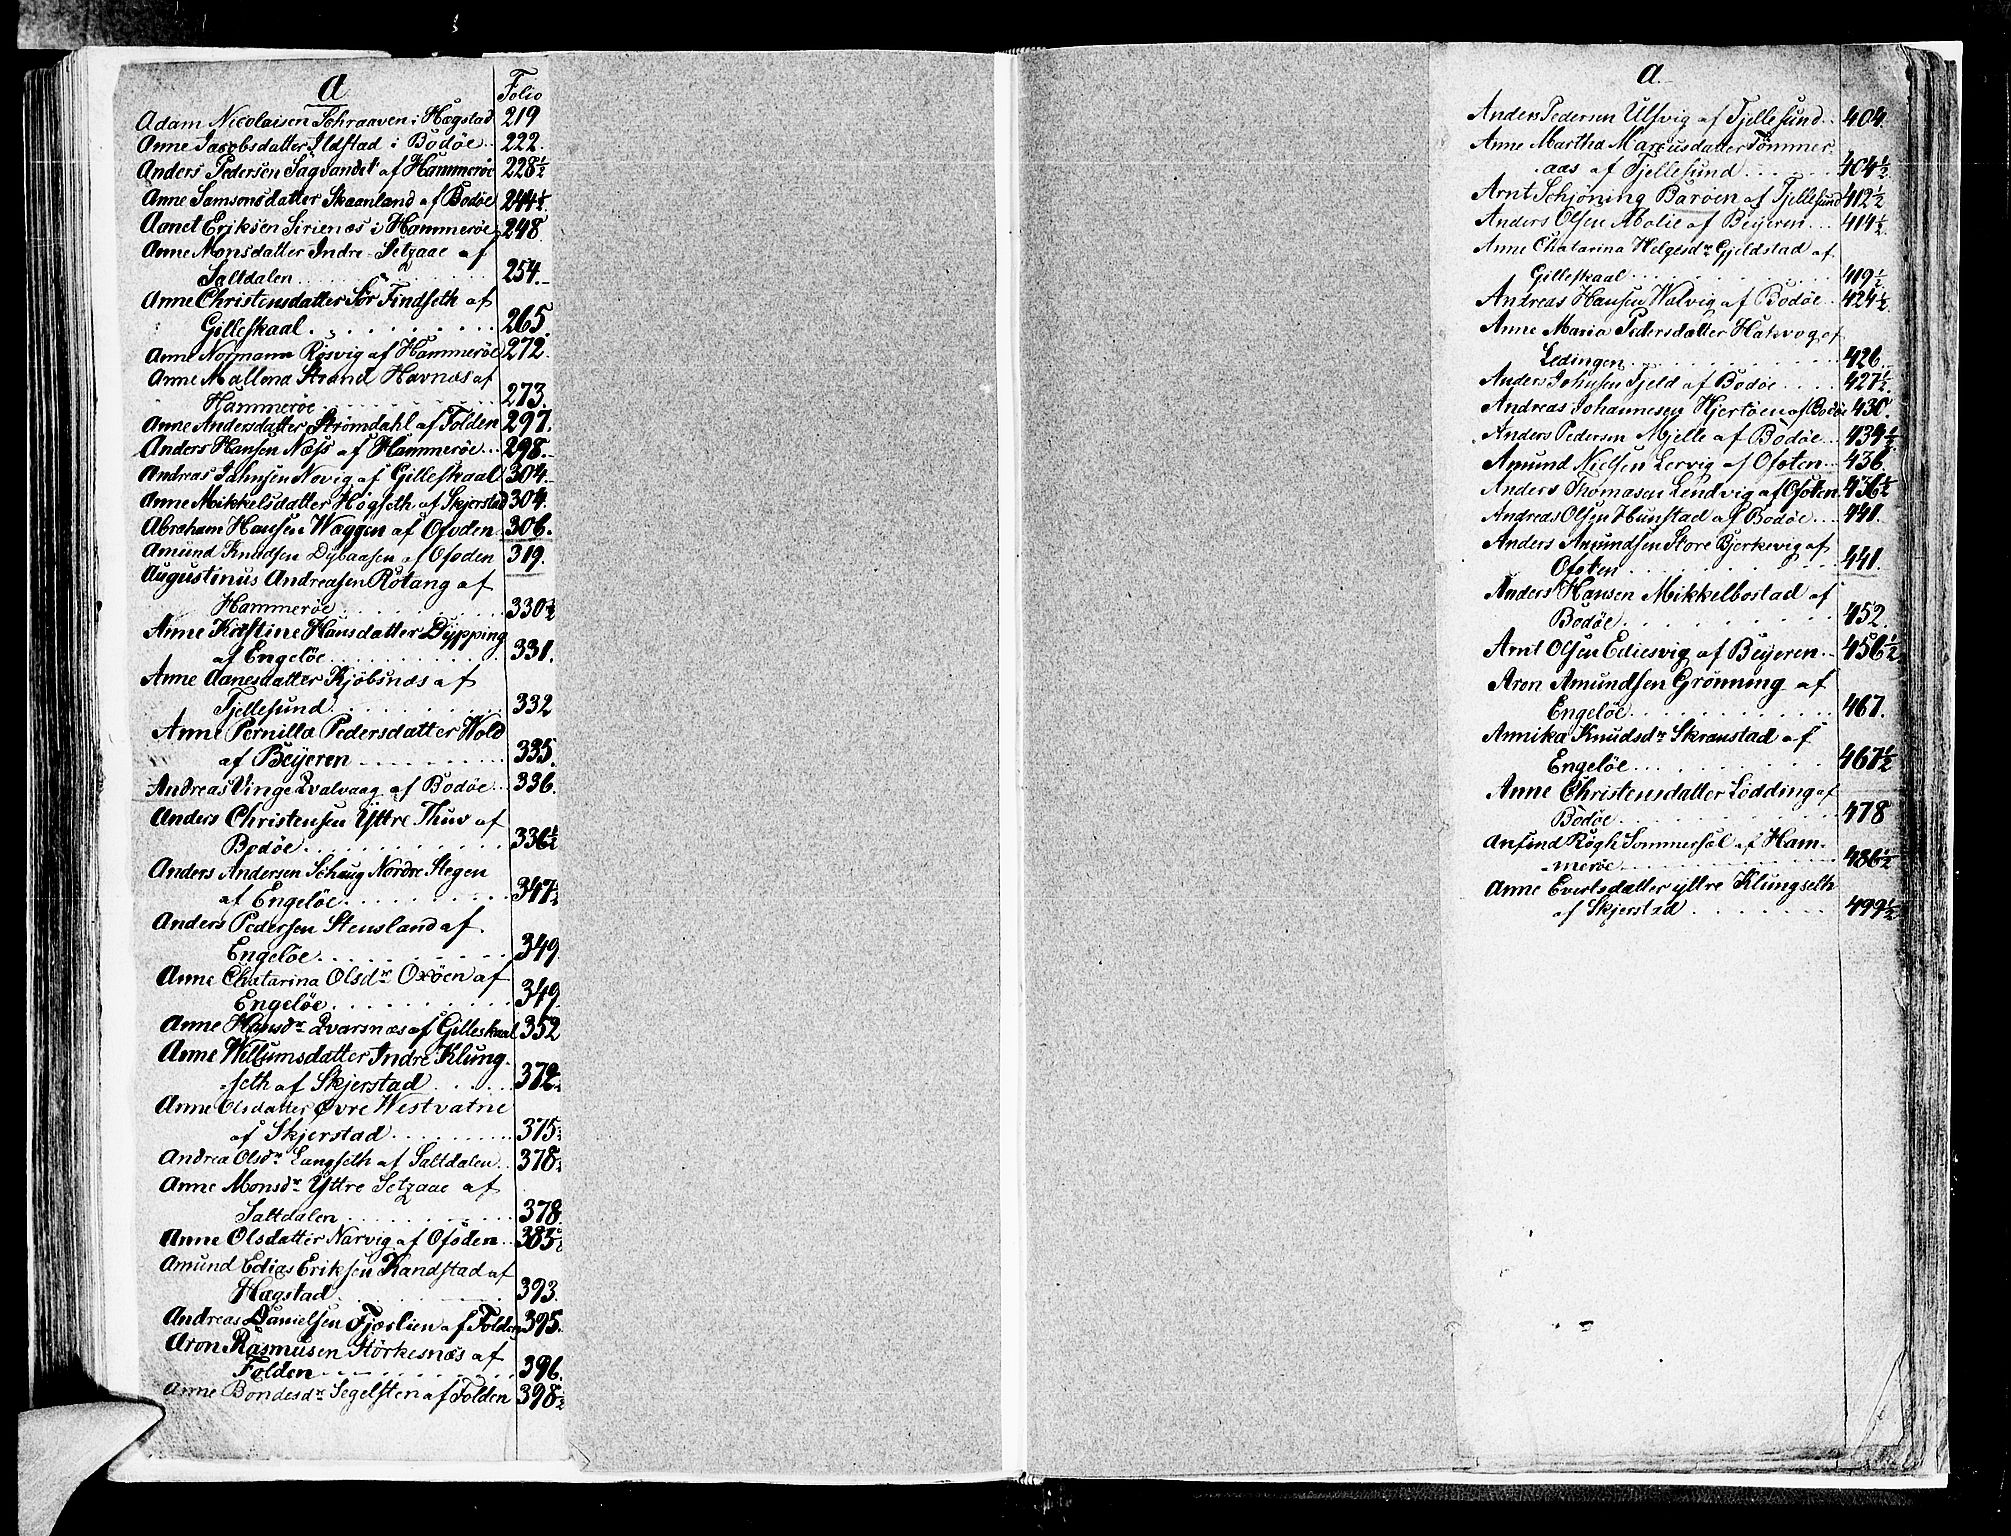 A
Folio
Adam Nicolaisen Schraaven i Hægstad 219
Anne Jacobsdatter Ildstad i Bodøe 222.
Anders Pedersen Sagvandet af Hammerøe 228½
Anne Samsonsdatter Skaanland af Bodøe 244½
Agnet Eriksen Sirienæs i Hammerøe 248
Anne Monsdatter Indre Setzaae af
Saltdalen 254.
Anne Christensdatter Sør Findseth af
Gilleskaal 265.
Anne Normann Røsvig af Hammerøe 272.
Anne Mallena Strand Havnæs af
Hammerøe 273.
Anne Andersdatter Strømdahl af Folden 297.
Anders Hansen Næss af Hammerøe 298.
Andreas Jahnsen Novig af Gilleskaal 304.
Anne Mikkelsdatter Høgseth af Skjerstad 304.
Abraham Hansen Waggen af Ofoden 306.
Amund Knudsen Dybaasen af Ofoden 319.
Augustinus Andreasen Rotang af
Hammerøe 330½
Anne Kristine Hansdatter Dypping
af Engeløe 331.
Anne Aanesdatter Kjøbsnæs af
Tjellesund 332
Anne Pernilla Pedersdatter Wold
af Beyeren 335.
Andreas Vinge Qvalvaag af Bodøe 336.
Anders Christensen Yttre Thuv af
Bodøe 336½
Anders Andersen Schaug Nordre Stegen
af Engeløe 347½
Anders Pedersen Stensland af
Engeløe 349.
Anne Chatarina Olsdr Oxøen af
Engeløe 349.
Anne Hansdr Qvarsnæs af Gilleskaal 352
Anne Willumsdatter Indre Klung
seth af Skjerstad 372½
Anne Olsdatter Øvre Westvatne
af Skjerstad 375½
Andrea Olsdr Langseth af Saltdalen 378½
Anne Monsdr Yttre Setzaae af
Saltdalen 378.
Anne Olsdatter Narvig af Ofoden 385½
Amund Edias Eriksen Kandstad af
Hægstad 393.
Andreas Danielsen Fjæslien af Folden 395.
Aron Rasmusen Størkesnæs af
Folden 396.
Anne Bondesdr Segelsten af Folden 398½
A.
Anders Pedersen Ulsvig af Tjellesund 404.
Anne Martha Marcusdatter Tømmer-
aas af Tjellesund 404½
Arnt Schjøning Barøen af Tjellesund 412½
Anders Olsen Molie af Beyeren 414½
Anne Chatarina Helgesdr Gjeldstad af
Gilleskaal 419½
Andreas Hansen Valvig af Bodøe 424½
Anne Maria Pedersdatter Hatsvog af
Lødingen 426.
Anders Johnsen Fjeld af Bodøe 427½
Andreas Johannesen Hjertøen af Bodøe 430.
Anders Pedersen Mjelle af Bodøe 434½
Amund Nielsen Lervig af Ofoten 436.
Anders Thomasen Lendvig af Ofoten 436½
Andreas Olsen Hunstad af Bodøe 441.
Anders Amundsen Store Bjerkevig af
Ofoten 441.
Anders Hansen Mikkelbostad af
Bodøe 452.
Arnt Olsen Ediesvig af Beyeren 456½
Aron Amundsen Grønning af
Engeløe 467.
Annika Knudsdr Skranstad af
Engeløe 467½
Anne Christensdatter Lødding af
Bodøe 478
Anfind Røgh Sommersel af Ham-
merøe 486½
Anne Evertsdatter yttre Klungseth
af Skjerstad 499½